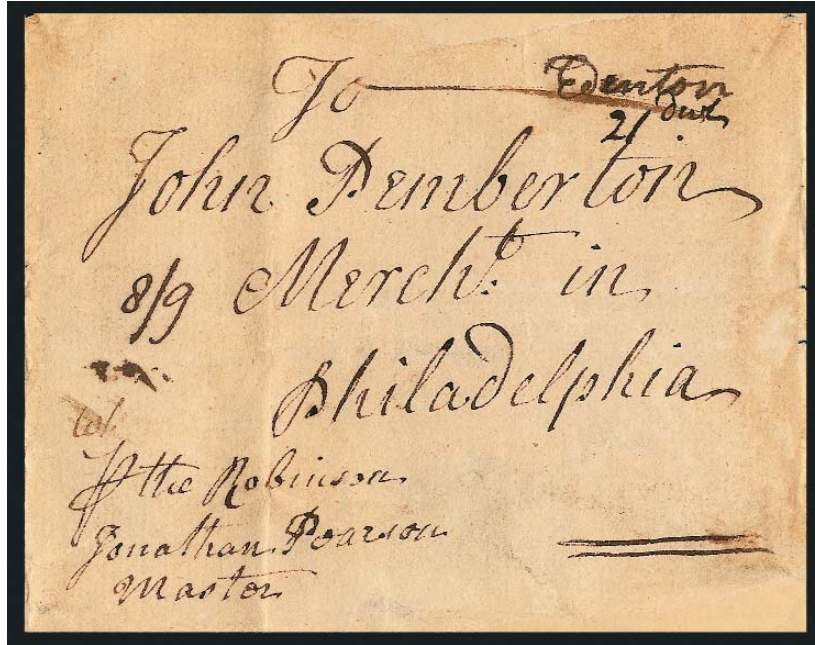 To Edenton
21 dwt
John Pemberton
8/9 Mercht. in
Philadelphia
⅌ the Robinson
Jonathan Pearson
Master